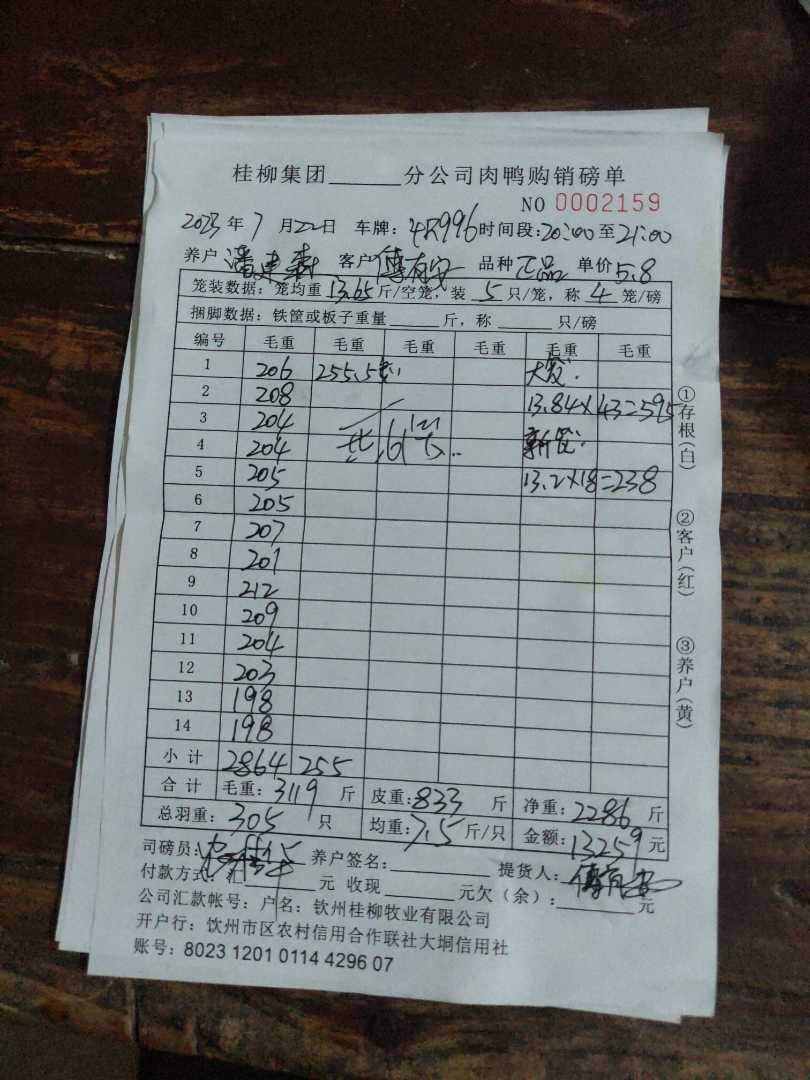 桂柳集团______分公司肉鸭购销磅单
NO 0002159
2023年7月22日 车牌: 4R996 时间段:20:00至21:00
养户 潘建森 客户 傅有安 品种 正品 单价 5.8
笼装数据: 笼均重 13.65 斤/空笼, 装 5 只/笼, 称 4 笼/磅
捆脚数据: 铁筐或板子重量______斤, 称______只/磅
编号 毛重 毛重 毛重 毛重 毛重 毛重
1 206 255.5
2 208 13.84×43=595
3 204
4 204 共61
5 205 13.2×18=238
6 205
7 207
8 201
9 212
10 209
11 204
12 203
13 198
14 198
小计 2864 255
合计 毛重: 3119 斤 皮重: 833 斤 净重: 2286 斤
总羽重: 305 只 均重: 7.5 斤/只 金额: 13259 元
司磅员: 养户签名:______ 提货人: 傅有安
付款方式: 汇______元 收现______元欠(余):______元
公司汇款帐号: 户名: 钦州桂柳牧业有限公司
开户行: 钦州市区农村信用合作联社大垌信用社
账号: 8023 1201 0114 4296 07
①存根(白) ②客户(红) ③养户(黄)